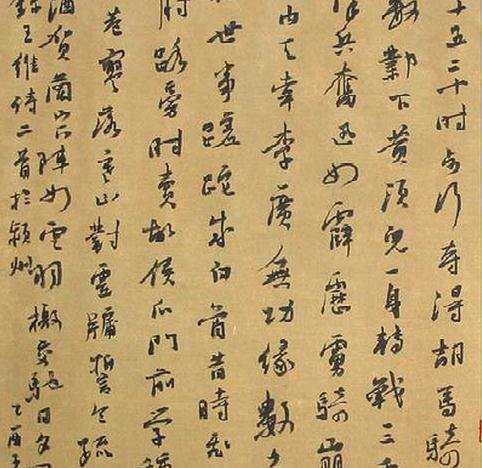 十五二十時步行奪得胡馬騎
數鄴下黃須兒一身轉戰三
兵奮迅如霹靂虜騎崩
天幸李廣無功緣數
世事蹉跎成白首昔時飛
肘路旁時賣故侯瓜門前學種
巷寥落寒山對虛牖誓令疏
酒賀蘭山下陣如雲羽檄交馳日夕
錄王維詩二首於潁州
乙酉